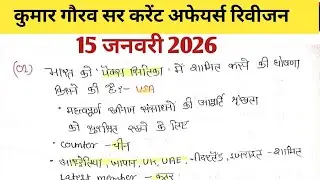 कुमार गौरव सर करेंट अफेयर्स रिवीजन
15 जनवरी 2026
(01) भारत को पैक्स सिलिका में शामिल करने की घोषणा
किसने की है:- USA
• महत्वपूर्ण खनिज संसाधनों की आपूर्ति श्रृंखला
को सुरक्षित रखने के लिए
• counter - चीन
• आस्ट्रेलिया, जापान, UK, UAE, नीदरलैंड, इजरायल - शामिल
Latest member - कतर